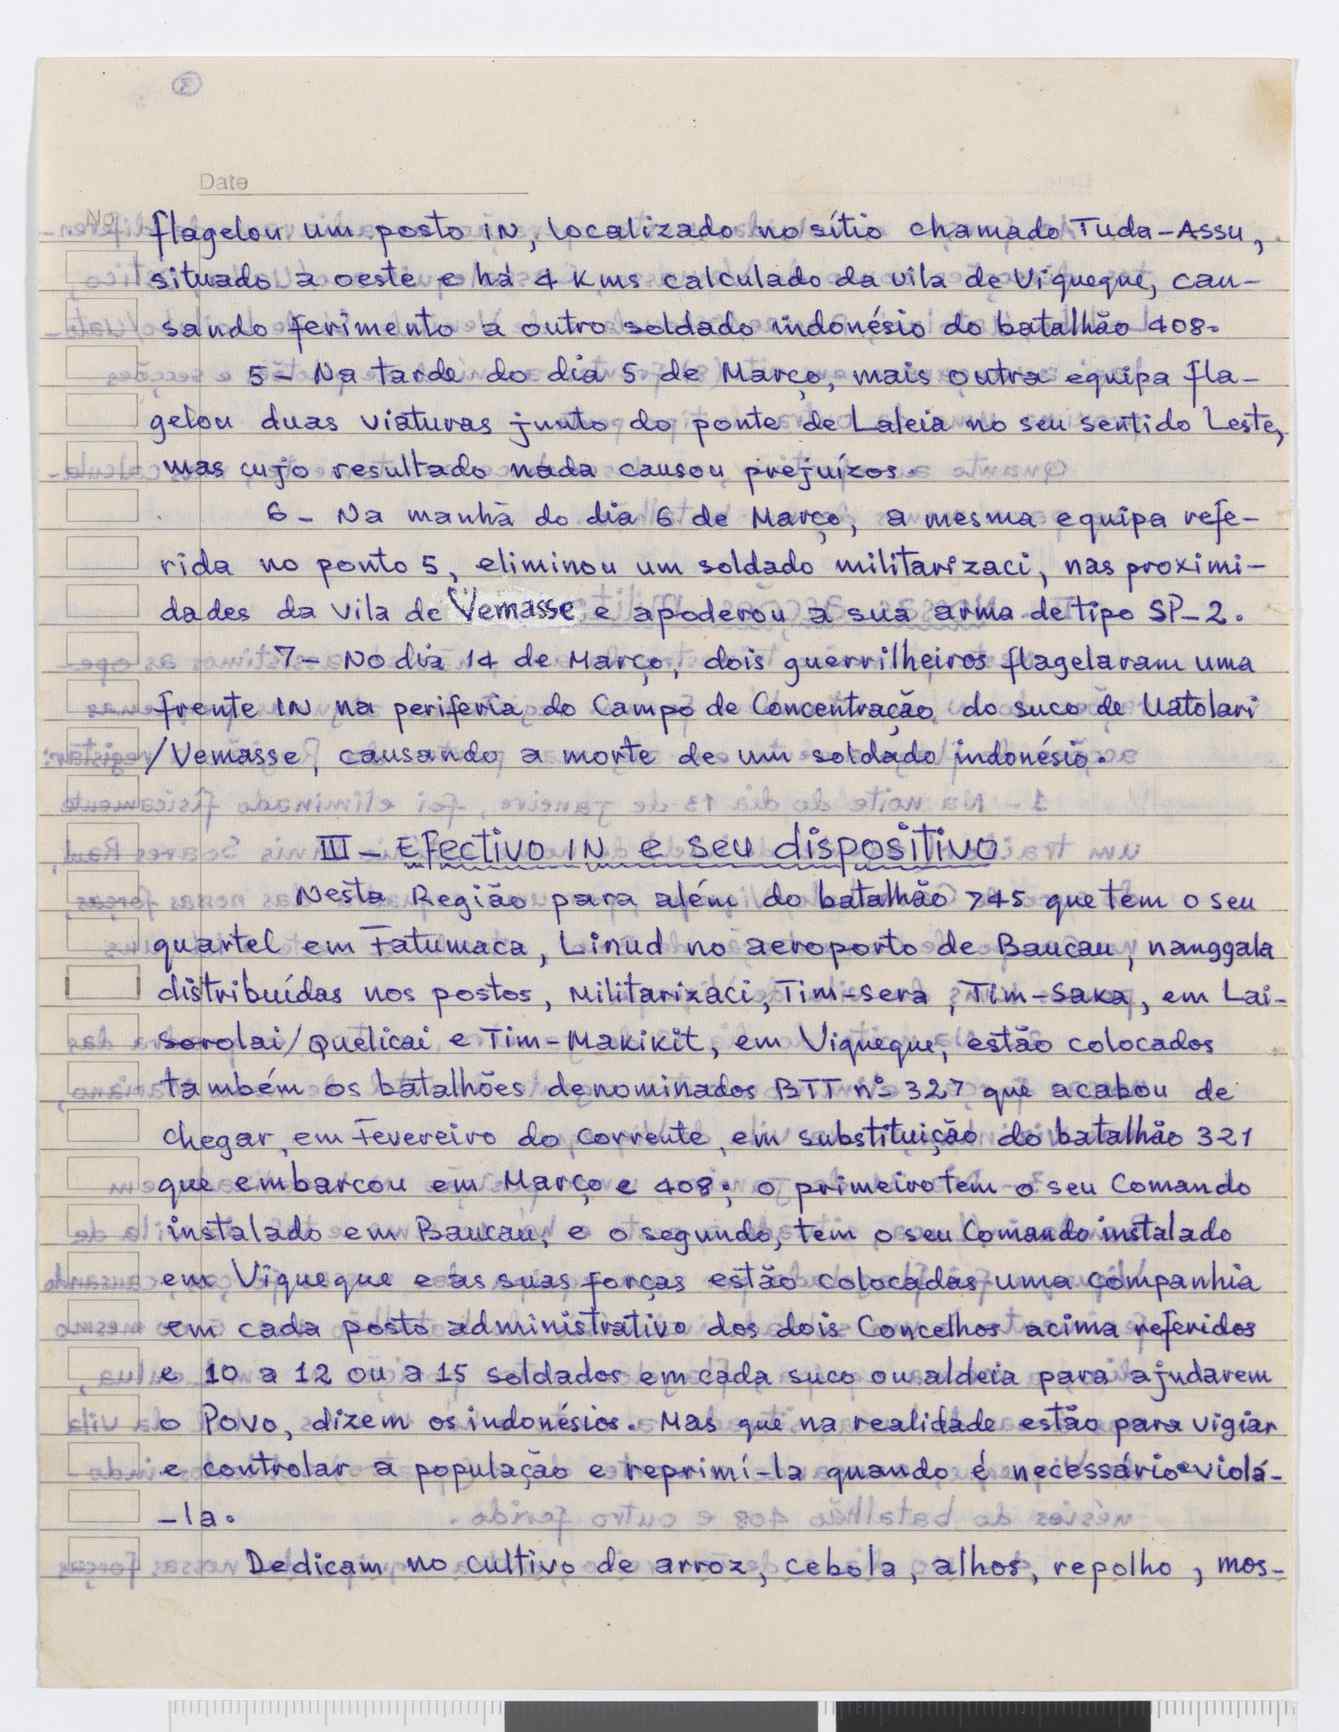 3
Date
No
flagelou um posto IN, localizado no sítio chamado Tuda-Assu,
situado a oeste e há 4 Kms calculado da vila de Viqueque, cau-
sando ferimento a outro soldado indonésio do batalhão 408.
5- Na tarde do dia 5 de Março, mais outra equipa fla-
gelou duas viaturas junto do ponte de Laleia no seu sentido Leste,
mas cujo resultado nada causou prejuízos.
6- Na manhã do dia 6 de Março, a mesma equipa refe-
rida no ponto 5, eliminou um soldado militarizaci, nas proximi-
dades da vila de Vemasse e apoderou a sua arma de tipo SP-2.
7- No dia 14 de Março, dois guerrilheiros flagelaram uma
frente IN na periferia do Campo de Concentração do suco de Uatolari
/Vemasse, causando a morte de um soldado indonésio.
III- Efectivo IN e seu dispositivo
Nesta Região para além do batalhão 745 que tem o seu
quartel em Fatumaca, Linud no aeroporto de Baucau, nanggala
distribuídas nos postos, Militarizaci, Tim-sera, Tim-Saka, em Lai-
sorolai/Quelicai e Tim-Makikit, em Viqueque, estão colocados
também os batalhões denominados BTT nº 327 que acabou de
chegar, em Fevereiro do corrente, em substituição do batalhão 321
que embarcou em Março e 408; o primeiro tem o seu Comando
instalado em Baucau, e o segundo, tem o seu Comando instalado
em Viqueque e as suas forças estão colocadas uma companhia
em cada posto administrativo dos dois Concelhos acima referidos
e 10 a 12 ou a 15 soldados em cada suco ou aldeia para ajudarem
o Povo, dizem os indonésios. Mas que na realidade estão para vigiar
e controlar a população e reprimí-la quando é necessário e violá-
-la.
Dedicam no cultivo de arroz, cebola, alhos, repolho, mos-